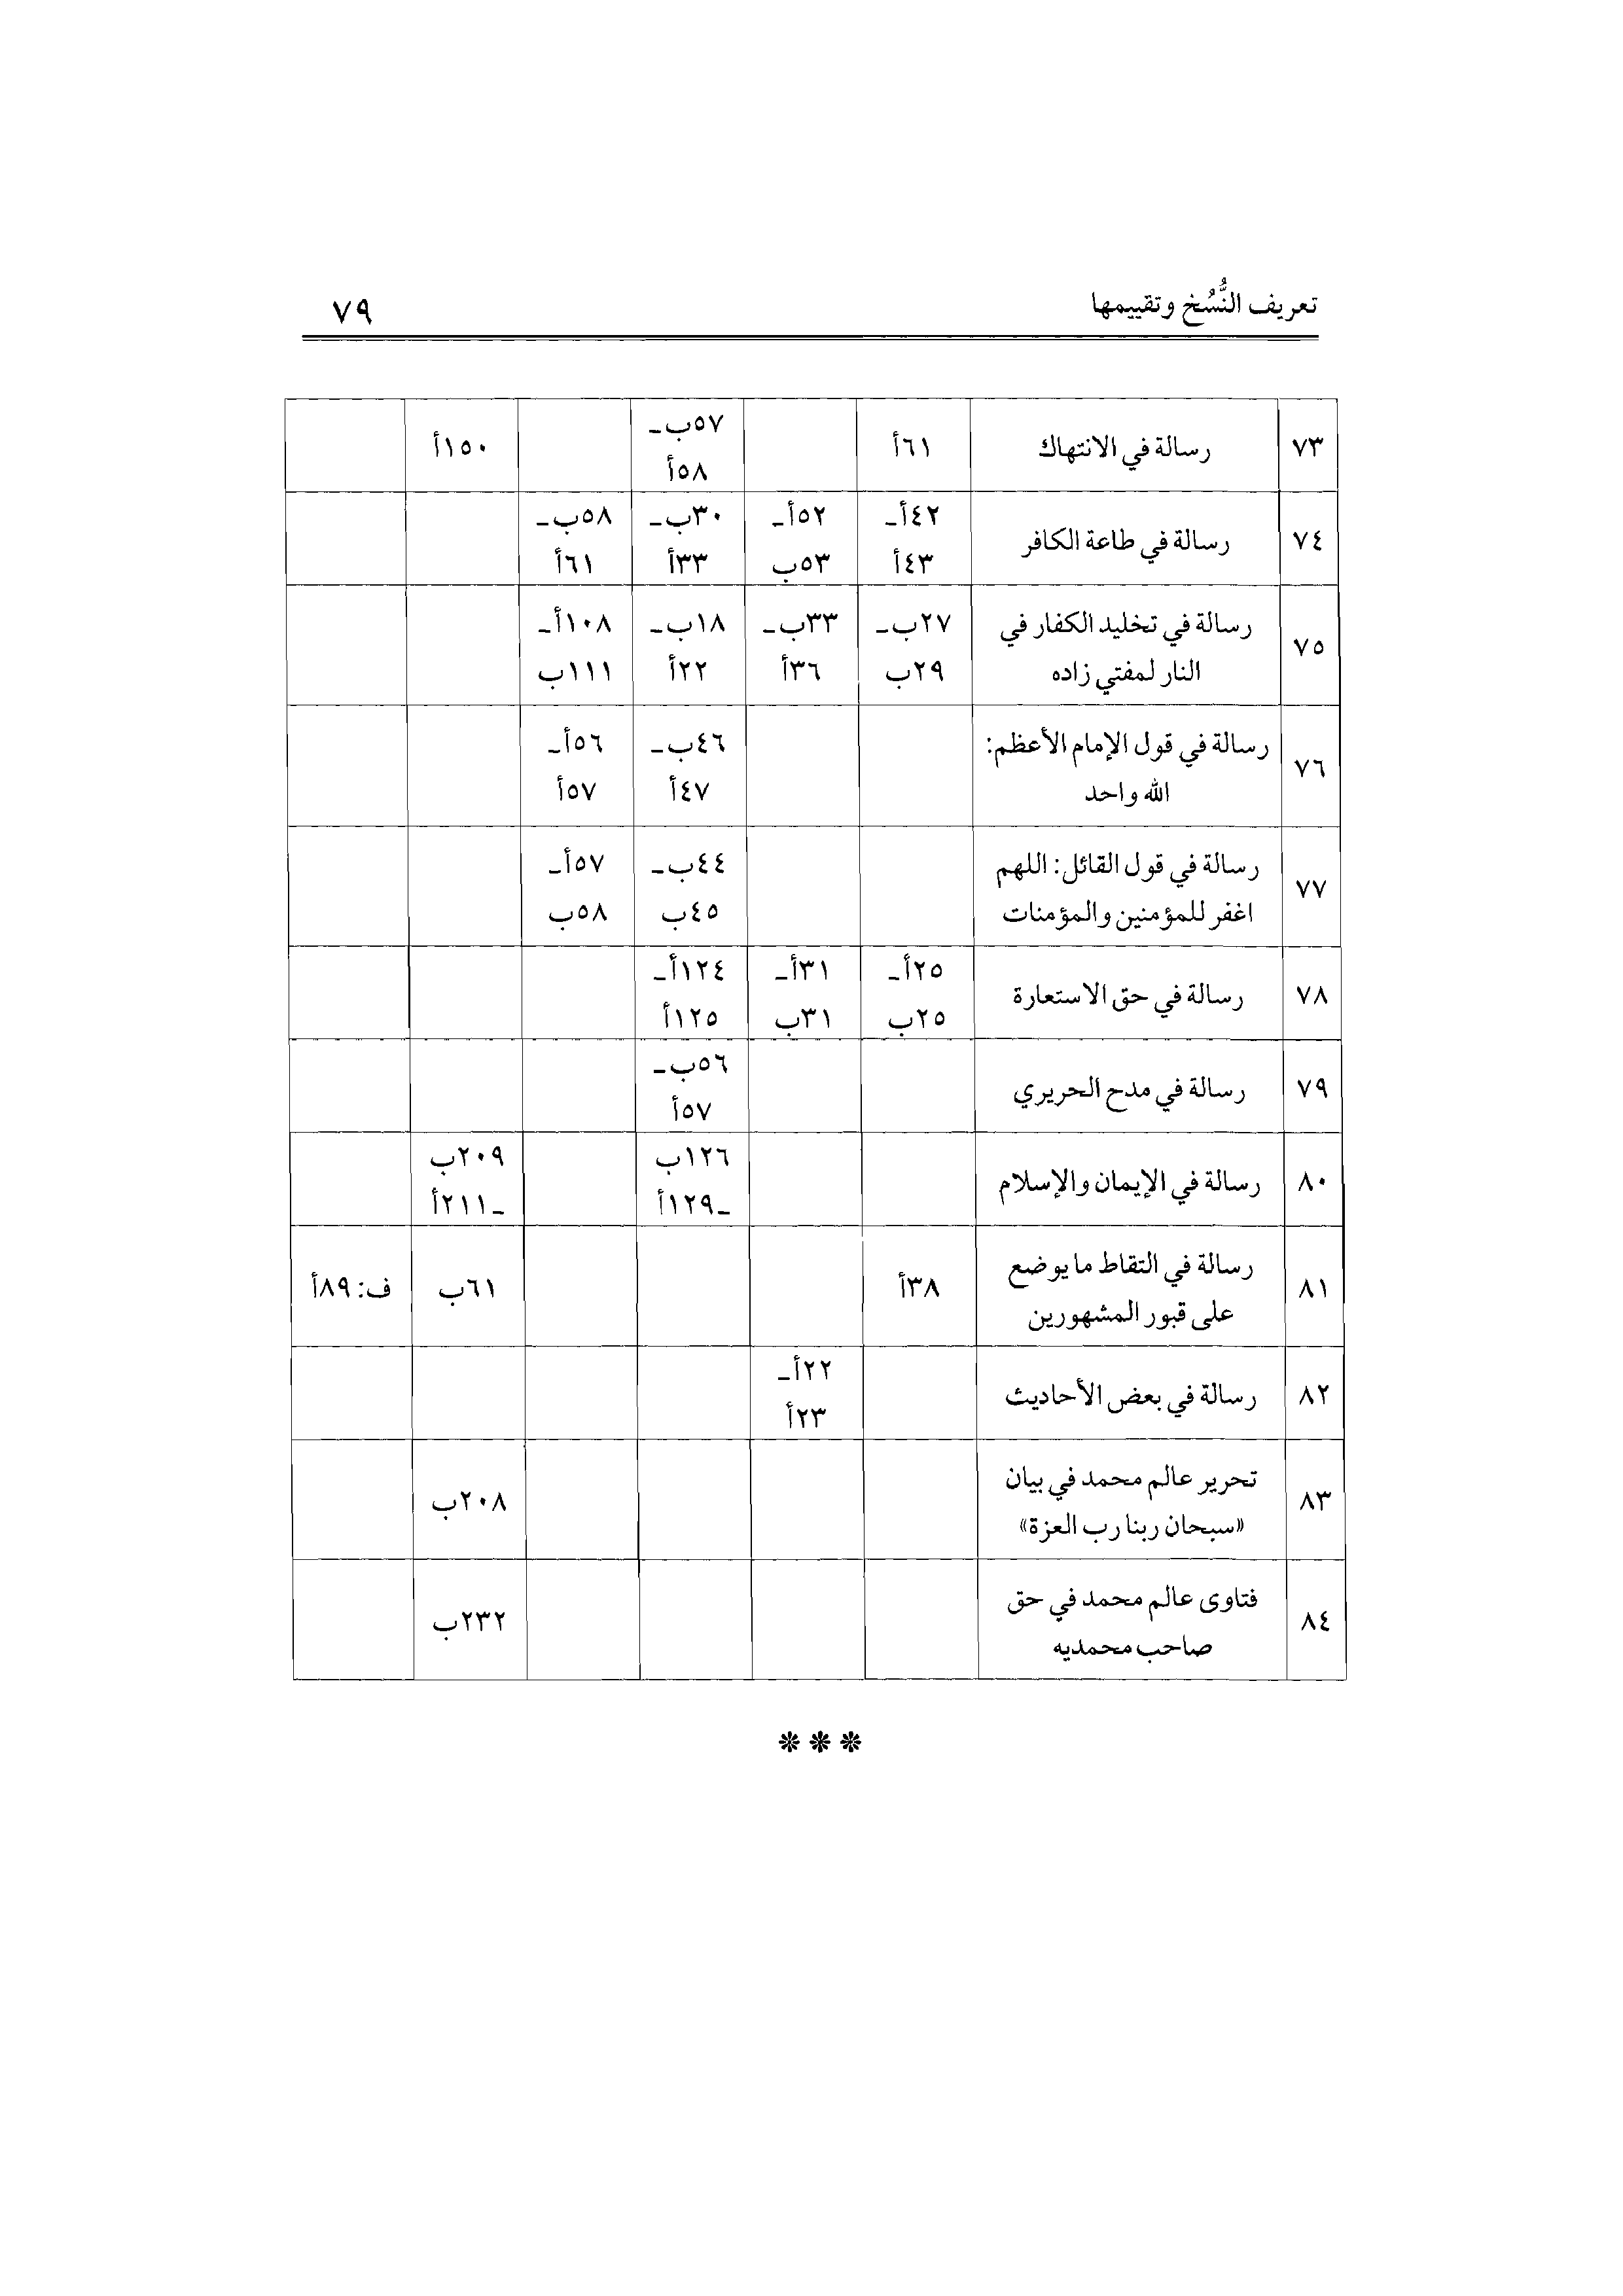 تعريف النُّسُخ وتقييمها ٧٩
٧٣ رسالة في الانتهاك ٦١أ ٥٧ب ـ ٥٨أ ١٥٠أ
٧٤ رسالة في طاعة الكافر ٤٢أ ـ ٤٣أ ٥٢أ ـ ٥٣ب ٣٠ب ـ ٣٣أ ٥٨ب ـ ٦١أ
٧٥ رسالة في تخليد الكفار في
النار لمفتي زاده ٢٧ب ـ ٢٩ب ٣٣ب ـ ٣٦أ ١٨ب ـ ٢٢أ ١٠٨أ ـ ١١١ب
٧٦ رسالة في قول الإمام الأعظم:
الله واحد ٤٦ب ـ ٤٧أ ٥٦أ ـ ٥٧أ
٧٧ رسالة في قول القائل: اللهم
اغفر للمؤمنين والمؤمنات ٤٤ب ـ ٤٥ب ٥٧أ ـ ٥٨ب
٧٨ رسالة في حق الاستعارة ٢٥أ ـ ٢٥ب ٣١أ ـ ٣١ب ١٢٤أ ـ ١٢٥أ
٧٩ رسالة في مدح الحريري ٥٦ب ـ ٥٧أ
٨٠ رسالة في الإيمان والإسلام ١٢٦ب ـ ١٢٩أ ٢٠٩ب ـ ٢١١أ
٨١ رسالة في التقاط ما يوضع
على قبور المشهورين ٣٨أ ٦١ب ف: ٨٩أ
٨٢ رسالة في بعض الأحاديث ٢٢أ ـ ٢٣أ
٨٣ تحرير عالم محمد في بيان
«سبحان ربنا رب العزة» ٢٠٨ب
٨٤ فتاوى عالم محمد في حق
صاحب محمديه ٢٣٢ب
***